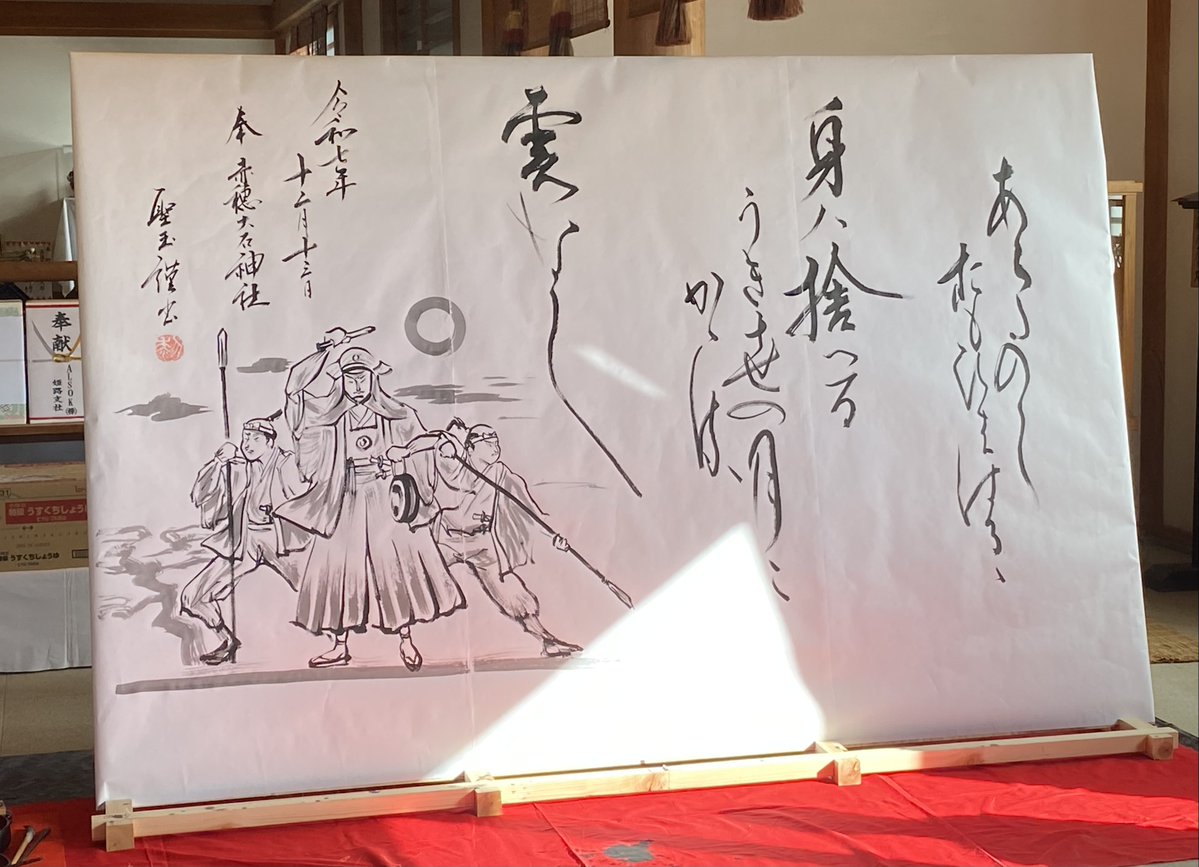 あらたのし
おもひははるゝ
身ハ捨つる
うき世の月に
かゝる
雲なし
令和七年
十二月十三日
奉 赤穂大石神社
聖玉謹書
奉献
ALSOK(株)
姫路支社
特級 うすくちしょうゆ
特級 うすくちしょうゆ